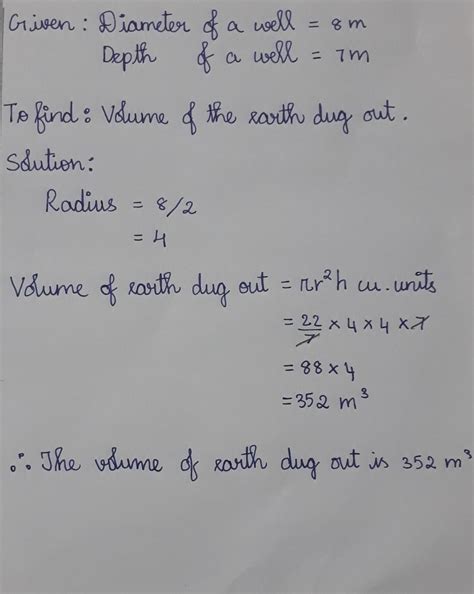 Given : Diameter of a well = 8 m
Depth of a well = 7m
To find : Volume of the earth dug out.
Solution:
Radius = 8/2
= 4
Volume of earth dug out = πr²h cu. units
= 22/7 × 4 × 4 × 7
= 88 × 4
= 352 m³
∴ The volume of earth dug out is 352 m³